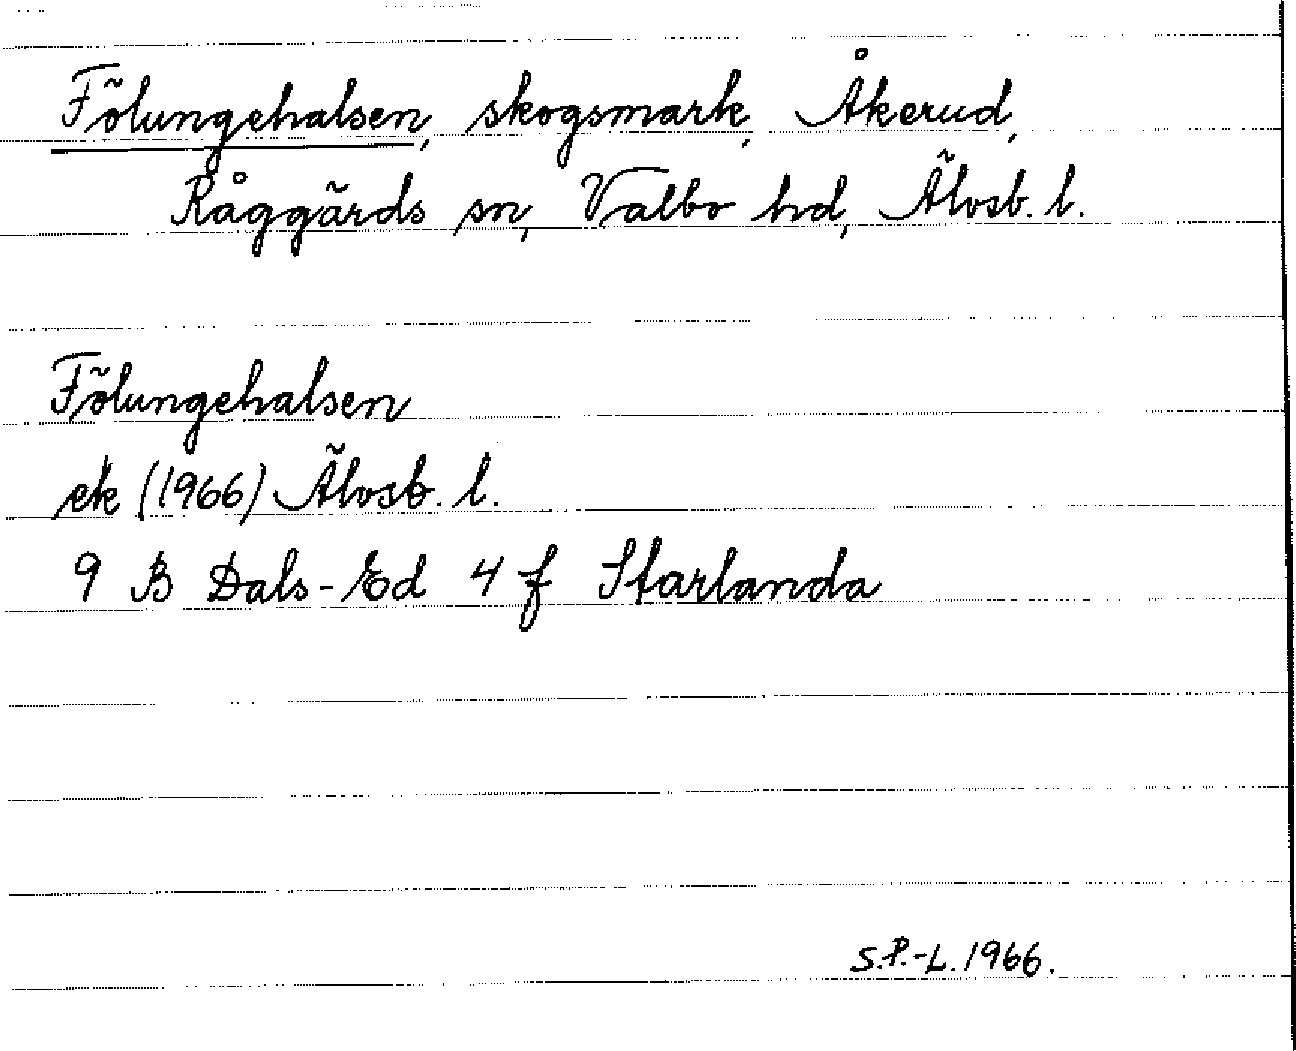 Fölungehalsen, skogsmark, Åkerud,
Råggärds sn, Valbo hd, Älvsb. l.
Fölungehalsen
ek (1966) Älvsb. l.
9 B Dals-Ed 4 f Starlanda
S.P.-L. 1966.